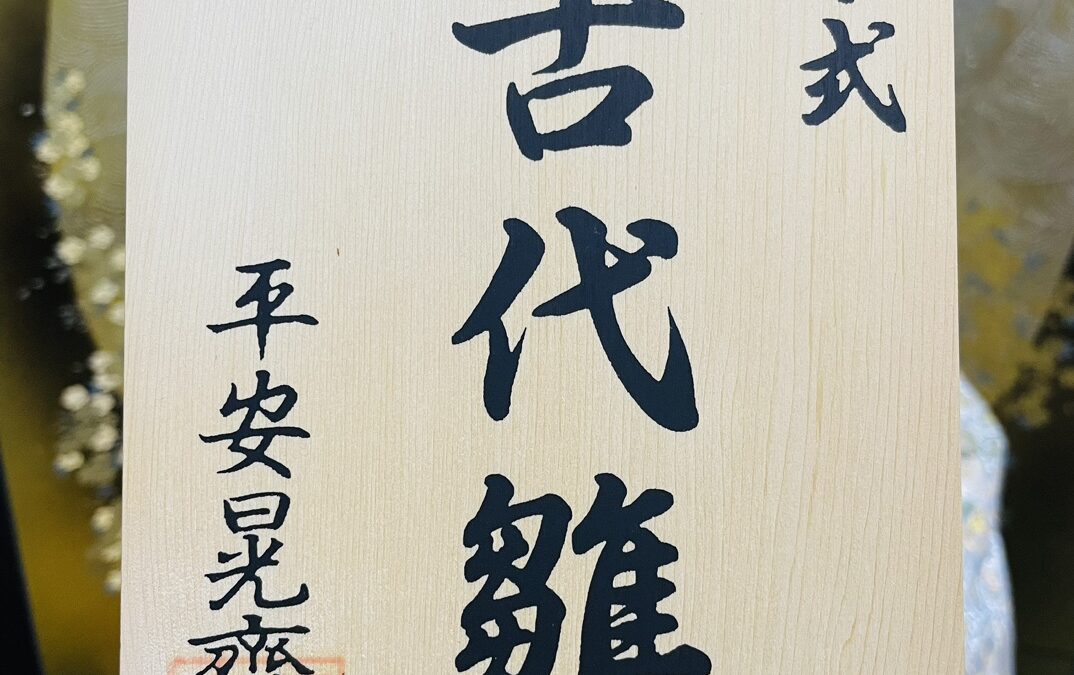 式
古代雛
平安晃齋